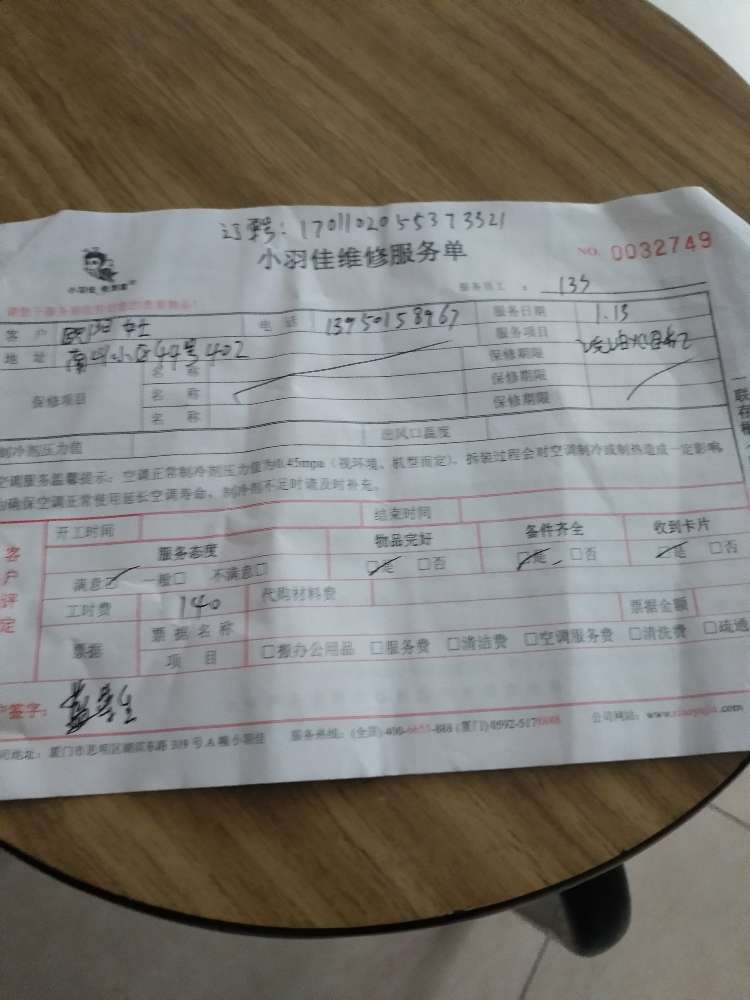 订单号：1701102055373521
小羽佳维修服务单
NO. 0032749
小羽佳
服务员工：135
客户 欧阳女士 电话 13950158967 服务日期 1.13
地址 南山小区44号402 服务项目
保修项目
名称 保修期限
名称 保修期限
名称 保修期限
制冷剂压力值 出风口温度
空调服务温馨提示：空调正常制冷剂压力值为0.45mpa（视环境、机型而定）、拆装过程会对空调制冷或制热造成一定影响，
为确保空调正常使用延长空调寿命，制冷剂不足时请及时补充。
客户评定
开工时间 结束时间
服务态度 物品完好 备件齐全 收到卡片
满意☑ 一般□ 不满意□ ☑是 □否 ☑是 □否 ☑是 □否
工时费 140 代购材料费
票据 票据名称 票据金额
项目 □搬办公用品 □服务费 □清洁费 □空调服务费 □清洗费 □疏通
户签字：
司地址：厦门市思明区湖滨东路309号A幢小羽佳 服务热线：(全国)400-6655-888 (厦门)0592-5178888 公司网站：www.xiaoyujia.com
一联存根